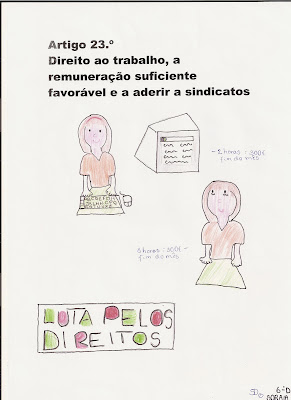 Artigo 23.º
Direito ao trabalho, a
remuneração suficiente
favorável e a aderir a sindicatos
horas : 300€
fim do mês
horas : 300€ -
fim do mês
LUTA PELOS
DIREITOS
6ºD
SORAIA